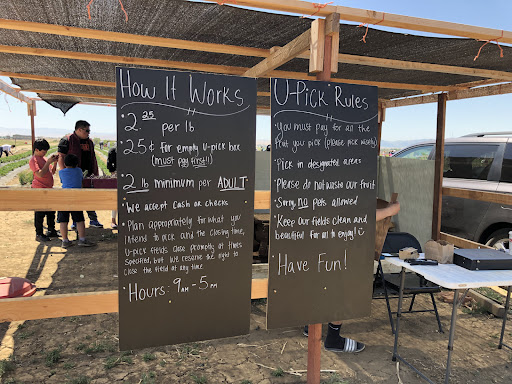 How It Works
2.25 per lb
25¢ for empty U-pick box
(must pay first!!)
2 lb minimum per ADULT
We accept cash or checks
Plan appropriately for what you
intend to pick and the closing time,
U-pick fields close promptly at times
specified, but we reserve the right to
close the field at any time.
Hours: 9AM - 5PM
U-Pick Rules
You must pay for all the
fruit you pick (please pick wisely)
Pick in designated areas
Please do not wash our fruit
Sorry no pets allowed
Keep our fields clean and
beautiful for all to enjoy!
Have Fun!